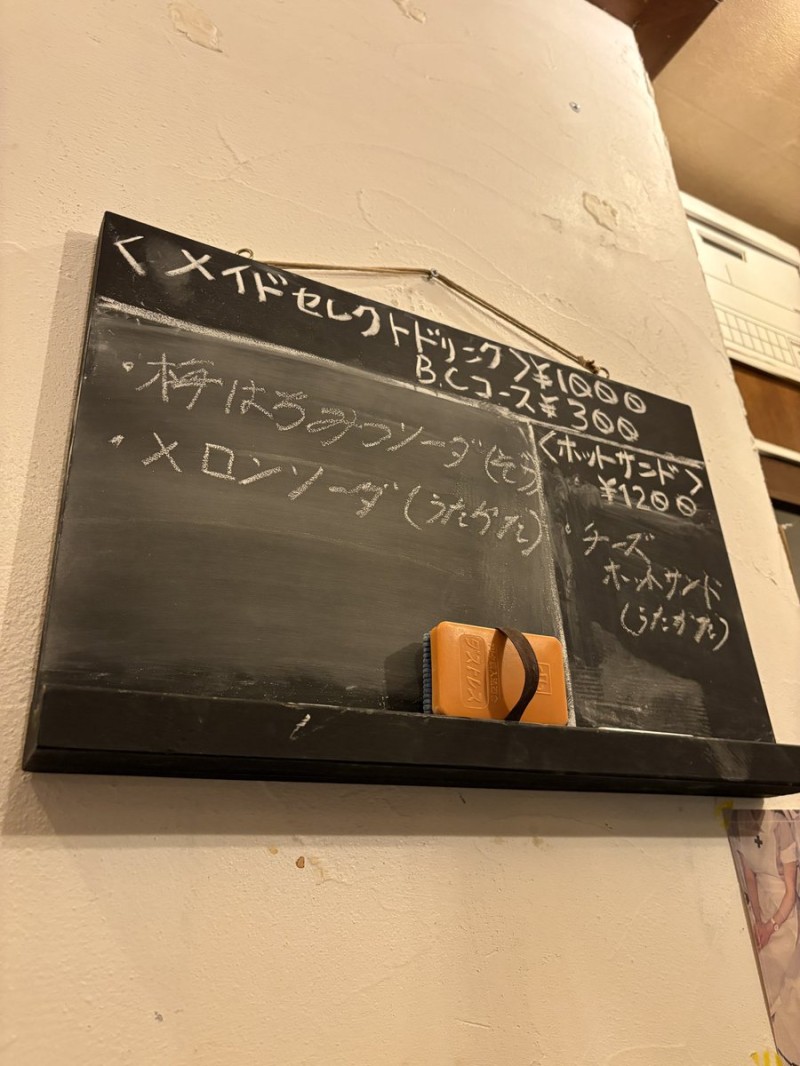 <メイドセレクトドリンク>¥1000
B.Cコース¥300
・梅はちみつソーダ(ぞう)
・メロンソーダ(うたかた)
<ホットサンド>
¥1200
・チーズ
ホットサンド
(うたかた)
ダストレス